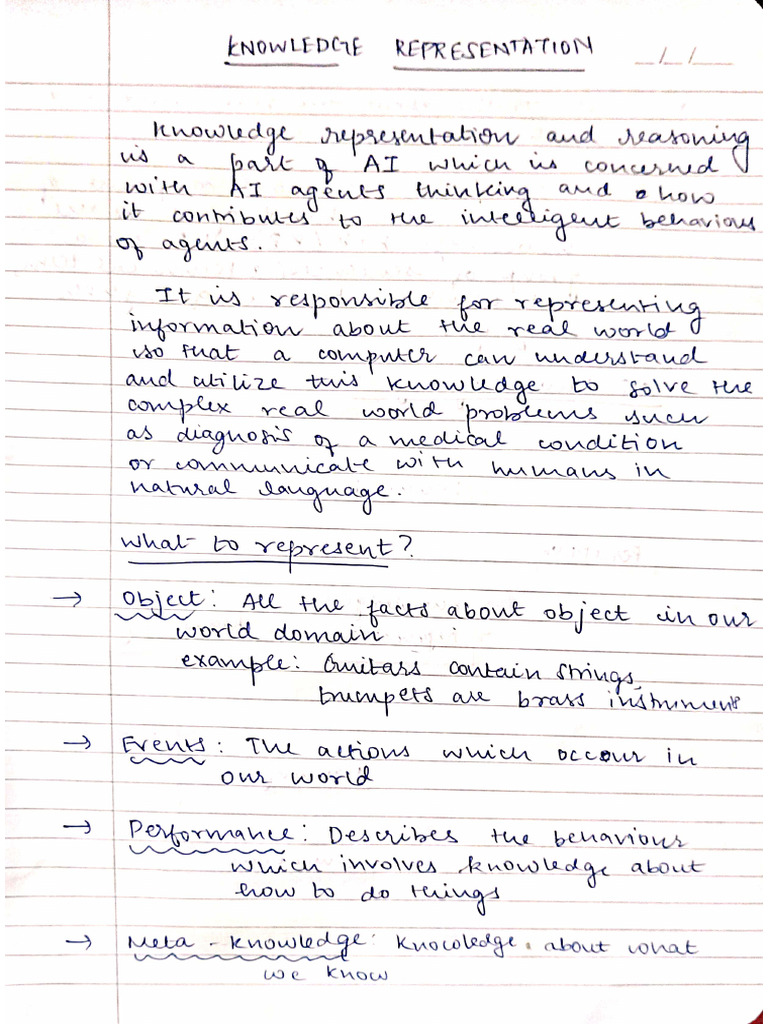 KNOWLEDGE REPRESENTATION __/__/__
Knowledge representation and reasoning
is a part of AI which is concerned
with AI agents thinking and how
it contributes to the intelligent behaviour
of agents.
It is responsible for representing
information about the real world
so that a computer can understand
and utilize this knowledge to solve the
complex real world problems such
as diagnosis of a medical condition
or communicate with humans in
natural language.
What to represent?
→ Object: All the facts about object in our
world domain
example: Guitars contain strings,
trumpets are brass instruments
→ Events: The actions which occour in
our world
→ Performance: Describes the behaviour
which involves knowledge about
how to do things
→ Meta-knowledge: Knowledge about what
we know